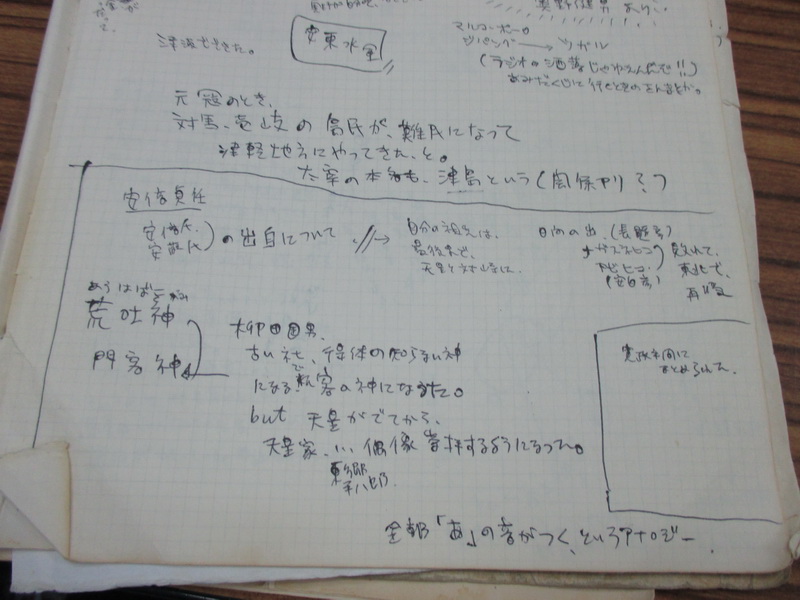 津波できた。
安東水軍
マルコ・ポーロ
ジパング → ツガル
(ラジオの洒落じゃねえんだで!!)
あみだくじに
元寇のとき、
対馬、壱岐の島民が、難民になって
津軽地方にやってきた、と。
太宰の本名も、津島という(関係アリ?)
安倍貞任
安倍氏、
安東氏
の出自について
自分の祖先は、
最後まで、
天皇と対峙した
日向の出、(長髄彦)
ナガスネヒコ
アビヒコ
(安日彦)
敗れて、
東北で、
再起
あらはばき
荒吐神
門客神
柳田国男
古い社で、得体の知らない神
になる。客の神になった。
but 天皇がでてから、
天皇家、いい偶像崇拝するようになった。
東郷
平八郎
憲政本間に
まとめられた。
全部「あ」の音がつく、というアナロジー、